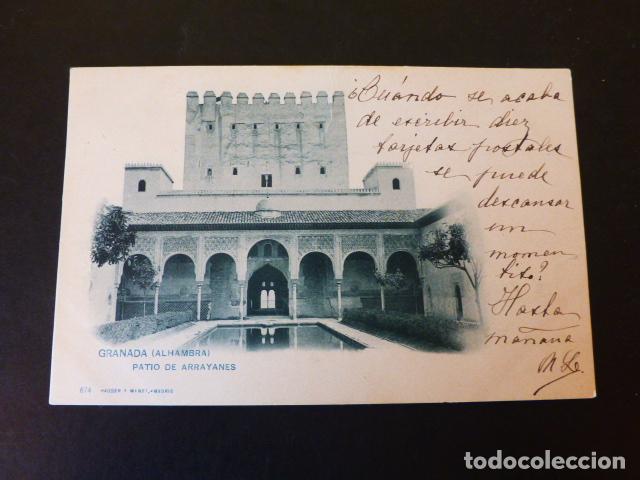 ¿Cuándo se acaba
de escribir diez
tarjetas postales
se puede
descansar
un
momen
tito?
Hasta
mañana
GRANADA (ALHAMBRA)
PATIO DE ARRAYANES
674 HAUSER Y MENET.-MADRID
todocoleccion.net